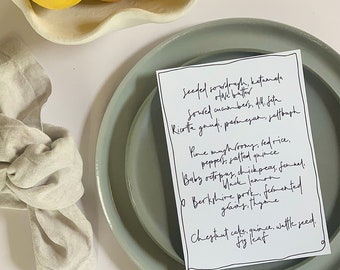 Seeded sourdough, kalamata
olive butter
Soured cucumbers, dill, feta
Ricotta gnudi, parmesan, saltbush
Pine mushrooms, red rice,
peppers, salted quince
Baby octopus, chickpeas, fennel,
black lemon
Berkshire pork, fermented
grains, thyme
Chestnut cake, quince, wattle seed,
fig leaf